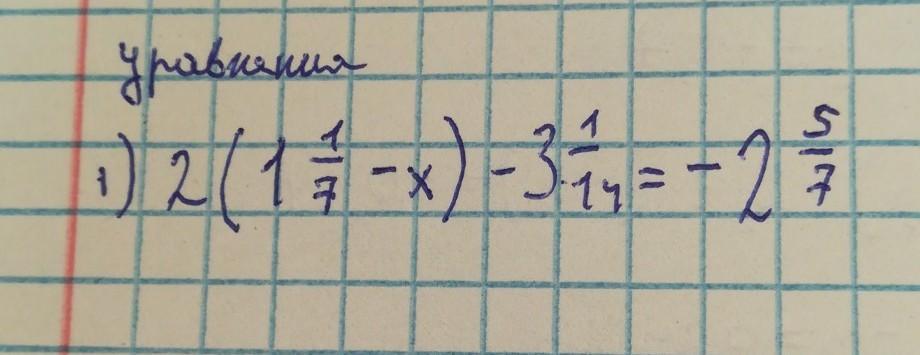 уравнения
1) 2(1 1/7 - x) - 3 1/14 = - 2 5/7